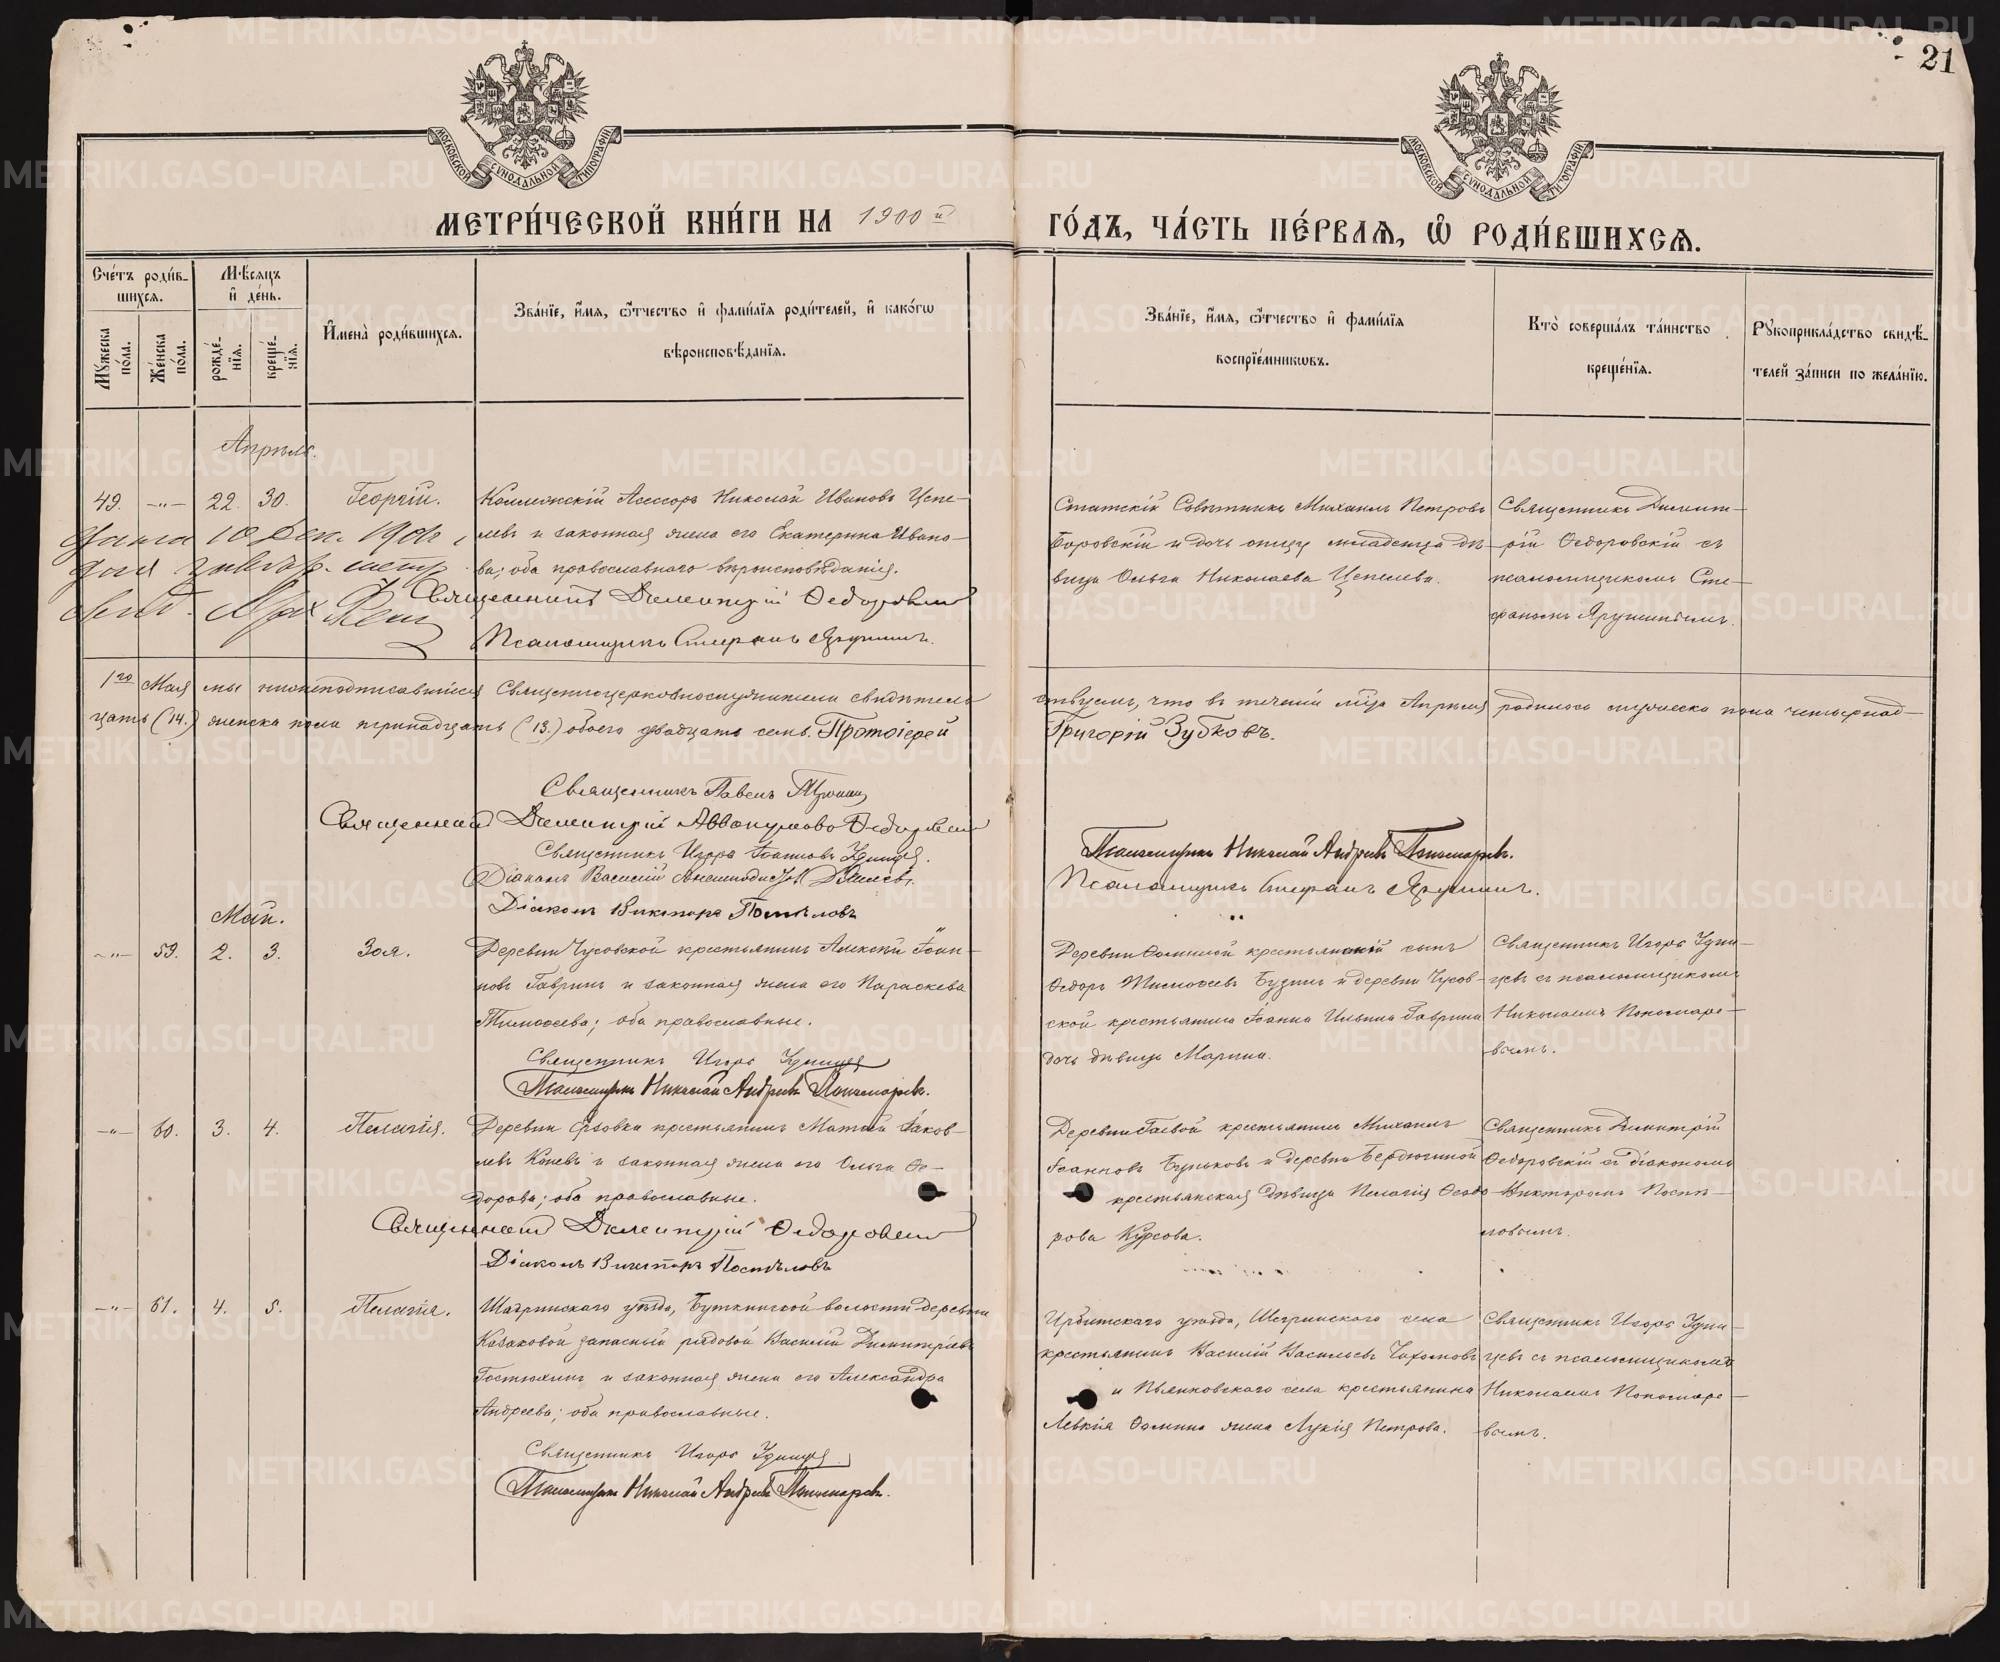 21
МОСКОВСКОЙ СѴНОДАЛЬНОЙ ТИПОГРАФІИ
МОСКОВСКОЙ СѴНОДАЛЬНОЙ ТИПОГРАФІИ
МЕТРИ́ЧЕСКОЙ КНИ́ГИ НА 1900й
ГО́ДЪ, ЧА́СТЬ ПЕ́РВАѦ, Ѿ РОДИ́ВШИХСѦ.
Сче́тъ роди́в-
шихся.
Мꙋ́жеска по́ла.
Же́нска по́ла.
Мѣ́сяцъ
и҆ де́нь.
рожде́-нїѧ.
креще́-нїѧ.
И҆мена̀ роди́вшихся.
Зва́нїе, и҆́мѧ, ѻ҆́тчество и҆ фами́лїѧ роди́телей, и҆ како́гѡ
вѣроисповѣ́данїѧ.
Зва́нїе, и҆́мѧ, ѻ҆́тчество и҆ фами́лїѧ
воспрїе́мникѡвъ.
Кто̀ соверша́лъ та́инство
креще́нїѧ.
Рꙋкоприкла́дство свидѣ́-
телей за́писи по жела́нїю.
Апрѣль.
49. -"- 22. 30. Георгій.
Коллежскій Асессоръ Николай Ивановъ Цепе-
левъ и законная жена его Екатерина Ивано-
ва; оба православнаго вѣроисповѣданія.
Священникъ Димитрій Ѳедоровскій
Псаломщикъ Стефанъ Ярушинъ.
Статскій Совѣтникъ Михаилъ Петровъ
Боровскій и дочь отцу младенца дѣ-
вица Ольга Николаева Цепелева.
Священникъ Димит-
рій Ѳедоровскій съ
псаломщикомъ Сте-
фаномъ Ярушинымъ.
1го Мая мы нижеподписавшіеся Священноцерковнослужители свидѣтель
ствуемъ, что въ теченіи мѣсяца Апрѣля родилось мужеска пола четырнад-
цать (14.) женска пола тринадцать (13.) обоего двадцать семь. Протоіерей
Григорій Зубковъ.
Священникъ Павелъ
Священникъ Димитрій Аввакумовъ Ѳедоровскій
Священникъ Игорь Іоанновъ Удинцевъ.
Діаконъ Василій
Діаконъ Викторъ Поспѣловъ
Псаломщикъ Николай Андреевъ Пономаревъ.
Псаломщикъ Стефанъ Ярушинъ.
Май.
-"- 59. 2. 3. Зоя.
Деревни Чусовской крестьянинъ Алексѣй Іоан-
новъ Гавринъ и законная жена его Параскева
Тимоѳеева; оба православные.
Священникъ Игорь Удинцевъ
Псаломщикъ Николай Андреевъ Пономаревъ.
Деревни Ѳоминой крестьянскій сынъ
Ѳедоръ Тимоѳеевъ Бузинъ и деревни Чусов-
ской крестьянина Іоанна Ильина Гаврина
дочь дѣвица Марина.
Священникъ Игорь Удин-
цевъ съ псаломщикомъ
Николаемъ Пономаре-
вымъ.
-"- 60. 3. 4. Пелагія.
Деревни крестьянинъ Матѳей Іаков-
левъ Коневъ и законная жена его Ольга Ѳе-
дорова; оба православные.
Священникъ Димитрій Ѳедоровскій
Діаконъ Викторъ Поспѣловъ
Деревни Гаевой крестьянинъ Михаилъ
Іоанновъ Буньковъ и деревни Бердюгиной
крестьянская дѣвица Пелагія Ѳеодо-
рова Курсова.
Священникъ Димитрій
Ѳедоровскій съ діакономъ
Викторомъ Поспѣ-
ловымъ.
-"- 61. 4. 5. Пелагія.
Шадринскаго уѣзда, Буткинской волости деревни
Казаковой запасный рядовой Василій Димитріевъ
Гостюхинъ и законная жена его Александра
Андреева; оба православные.
Священникъ Игорь Удинцевъ.
Псаломщикъ Николай Андреевъ Пономаревъ.
Ирбитскаго уѣзда, Шогринскаго села
крестьянинъ Василій Васильевъ Чохомовъ
и Пьянковскаго села крестьянина
Левкія Ѳомина жена Лукія Петрова.
Священникъ Игорь Удин-
цевъ съ псаломщикомъ
Николаемъ Пономаре-
вымъ.
METRIKI.GASO-URAL.RU